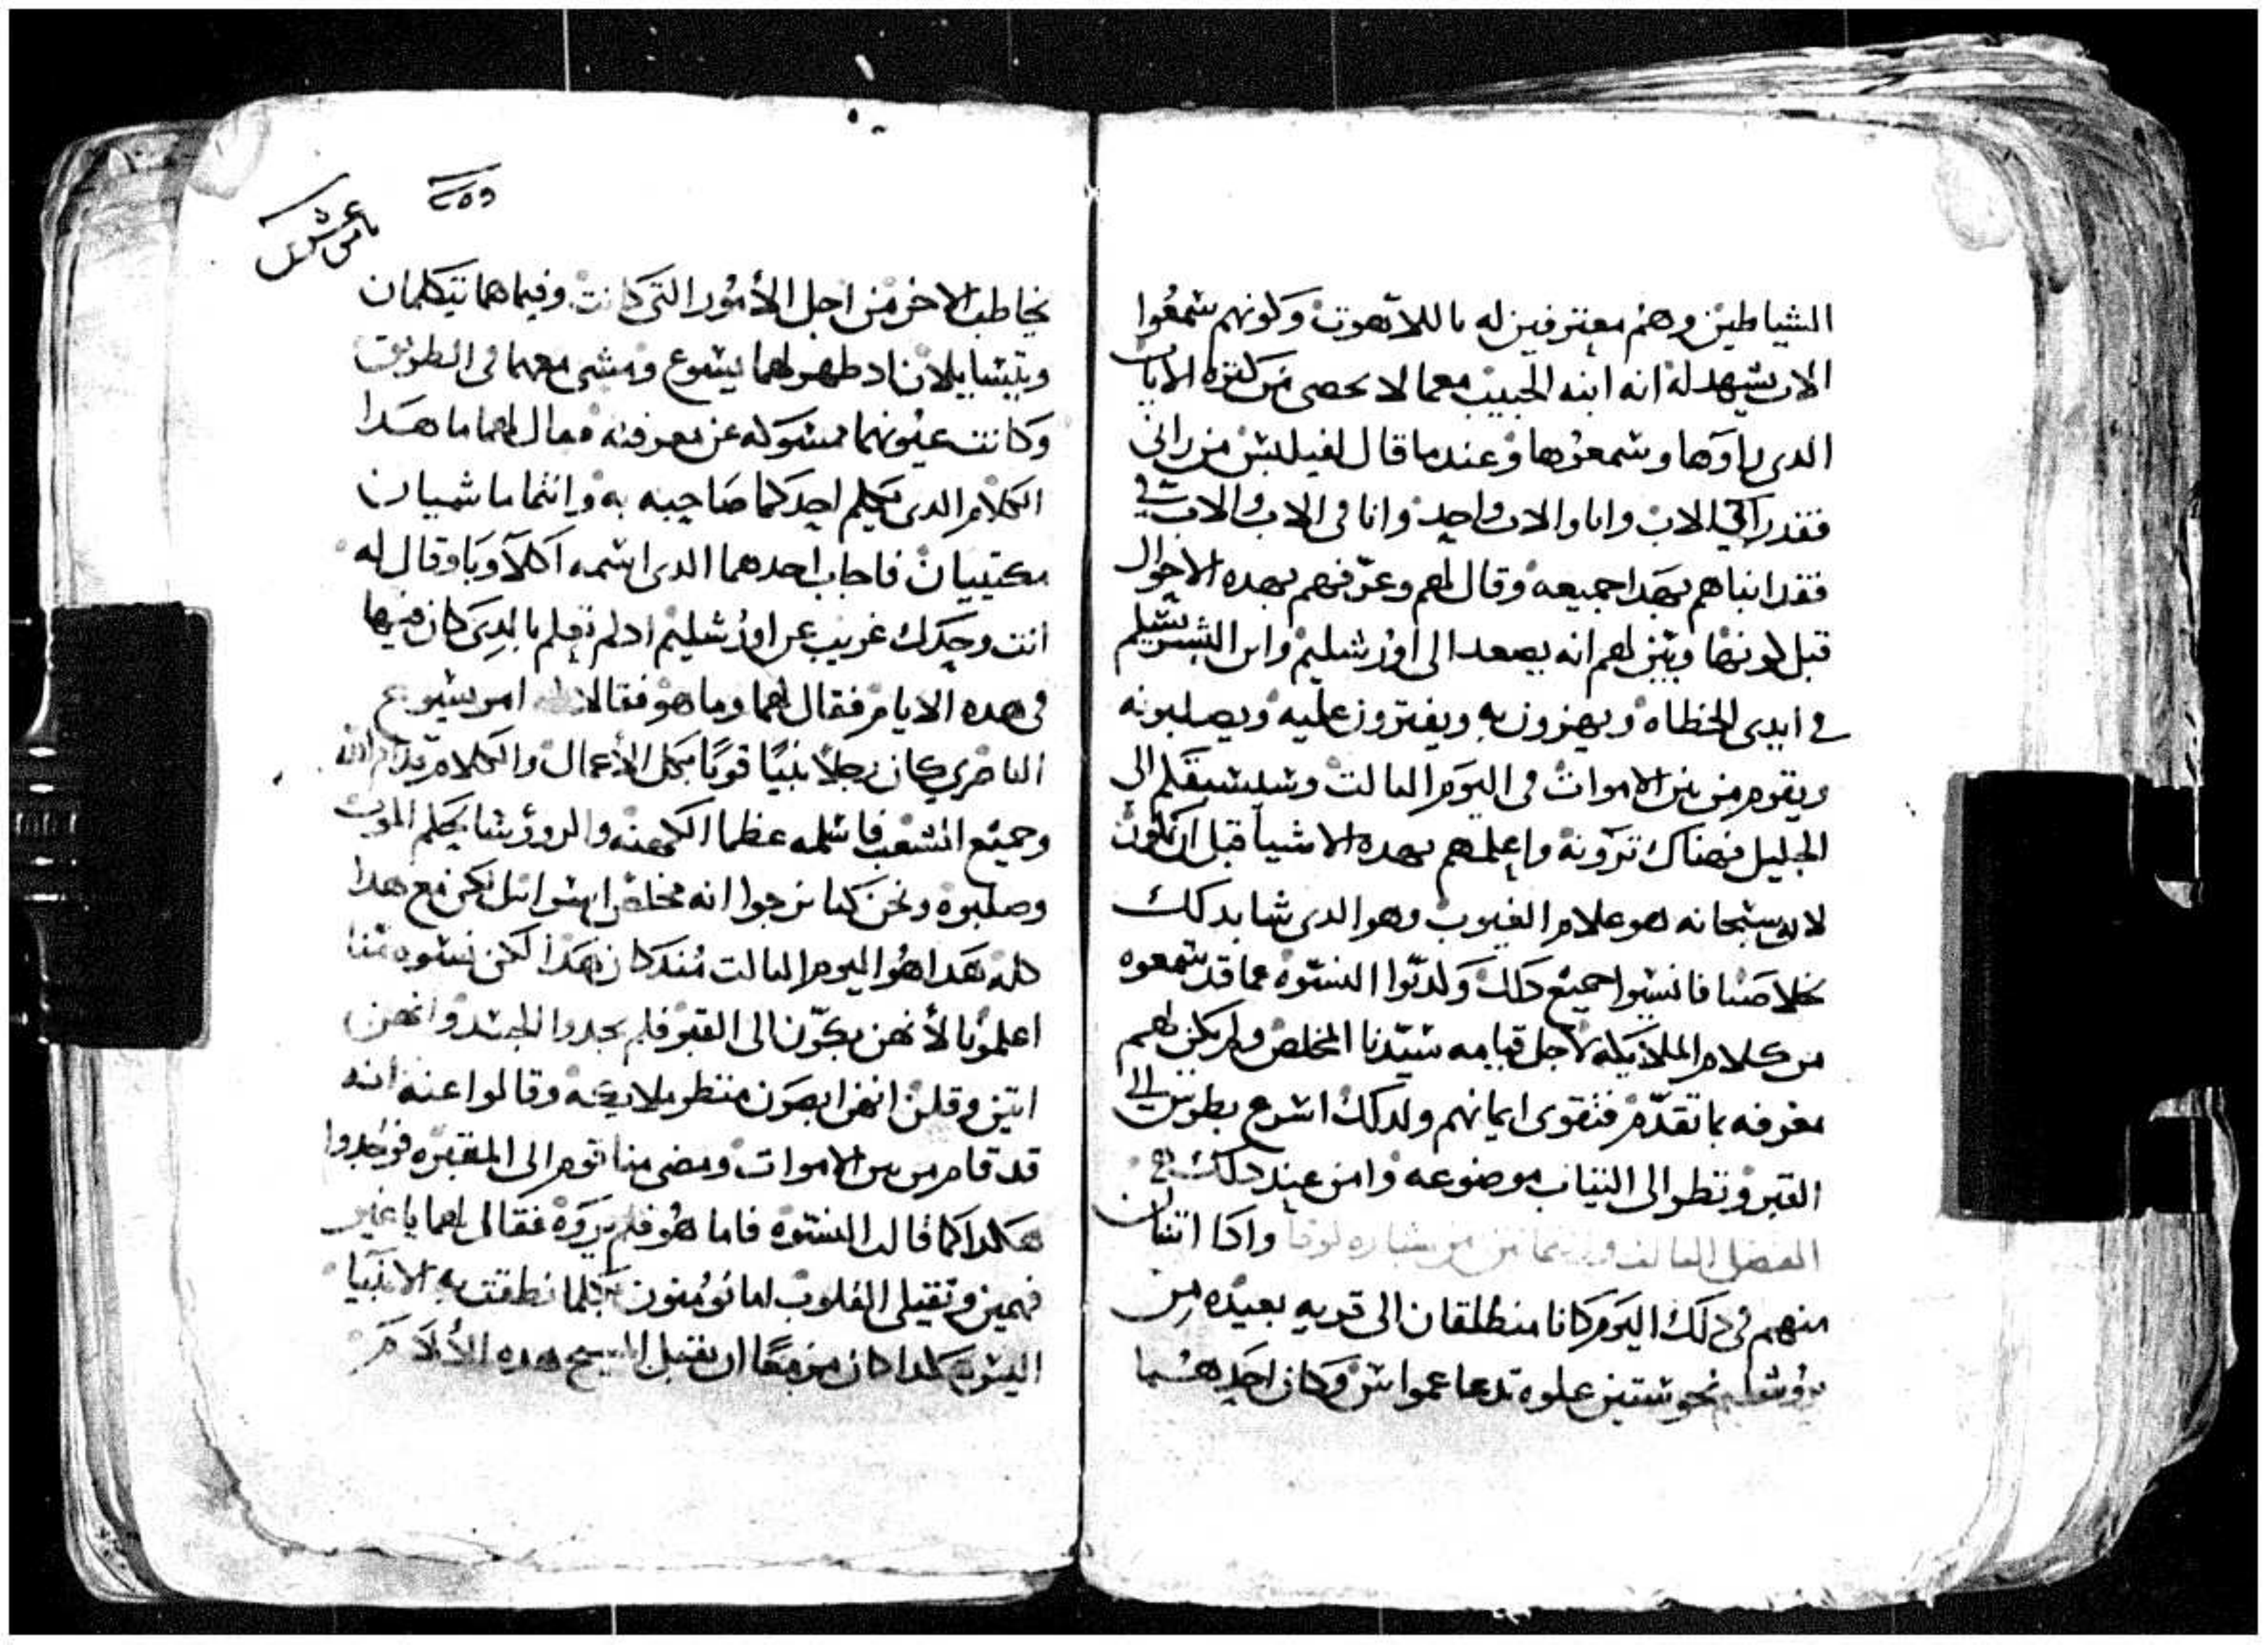 الشياطين وهم معترفين له باللاهوت وكونهم سمعوا
الاب يشهد له انه ابنه الحبيب معما لا يحصى من كثرة الايات
الدى راوها وسمعوها وعندما قال لفيلبس من رانى
فقد راى الاب وانا والاب واحد وانا فى الاب والاب فى
فقد انباهم بهدا جميعه وقال لهم وعرفهم بهده الاحوال
قبل كونها وبين لهم انه يصعد الى اورشليم وابن البشر يسلم
فى ايدى الخطاه ويهزون به ويفترون عليه ويصلبونه
ويقوم من بين الاموات فى اليوم التالت الى
الجليل فهناك ترونه واعلمهم بهده الاشيا قبل ان تكون
لانه سبحانه هو علام الغيوب وهو الدى شا بدلك
خلاصنا فانسيوا جميع دلك النسوه عما قد سمعوه
من كلام الملايكه لاجل قيامه سيدنا المخلص ولم يكن لهم
معرفه بما تقدم فتقوى ايمانهم ولدلك اسرع بطرس الى
القبر ونظر الى التياب موضوعه وامن عند دلك
الفصل التالت من بشاره لوقا وادا اتنان
منهم فى دلك اليوم كانا منطلقان الى قريه بعيده من
يروشليم نحو ستين علوه تدعا عمواس وكان احدهما
٢٥٥
يخاطب الاخر من اجل الأمور التى كانت وفيما هما يتكلمان
ويتسايلان اد ظهر لهما يسوع ومشى معهما فى الطريق
وكانت عيونهما ممسوكه عن معرفته فقال لهما ما هدا
الكلام الدى يكلم احدكما صاحبه به وانتما ماشيان
مكتيبان فاجاب احدهما الدى اسمه اكلاوبا وقال له
انت وحدك غريب عن اورشليم اد لم تعلم بالدى كان فيها
فى هده الايام فقال لهما وما هو فقالا له امر يسوع
الناصري كان رجلاً نبيًا قويًا بكل الأعمال والكلام قدام الله
وجميع الشعب فاسلمه عظما الكهنه والروؤسا بحكم الموت
وصلبوه ونحن كنا نرجوا انه مخلص اسرائيل لكن مع هدا
كله هدا هو اليوم التالت مند كان هدا لكن نسوه منا
اعلمونا لأنهن بكرن الى القبر فلم يجدوا الجسد وانهن
اتين وقلن انهن ابصرن منظر ملايكه وقالوا عنه انه
قد قام من بين الاموات ومضى منا قوم الى المقبره فوجدوا
هكدا كما قالت النسوه فاما هو فلم يروه فقال لهما يا غير
فهمين وتقيلى القلوب اما تؤمنون بكلما نطقت به الانبيا
اليس هكدا كان مزمعًا ان يقبل المسيح هده الألام